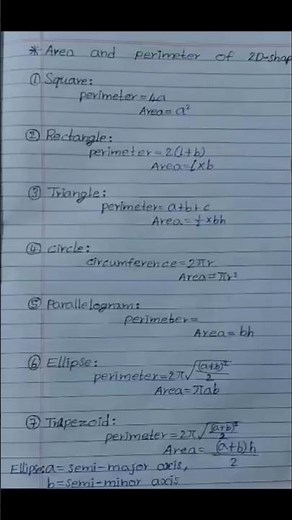 * Area and perimeter of 2D-shap
① Square:
perimeter=4a
Area=a²
② Rectangle:
perimeter=2(l+b)
Area=l×b
③ Triangle:
perimeter=a+b+c
Area=½×bh
④ circle:
circumference=2πr
Area=πr²
⑤ Parallelogram:
perimeter=
Area=bh
⑥ Ellipse:
perimeter=2π√(a+b)²/2
Area=πab
⑦ Trapezoid:
perimeter=2π√(a+b)²/2
Area=(a+b)h/2
Ellipse:a=semi-major axis,
b=semi-minor axis